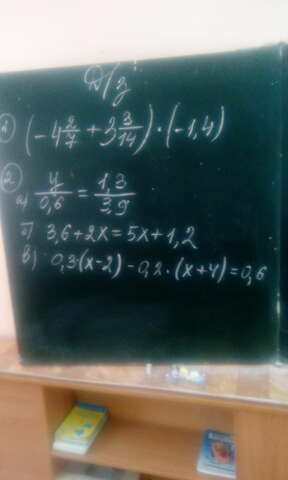 Д/з
1) (-4 2/7 + 3 3/14) · (-1,4)
2)
а) у/0,6 = 1,3/3,9
б) 3,6+2x=5x+1,2
в) 0,3·(x-2)-0,2·(x+4)=0,6